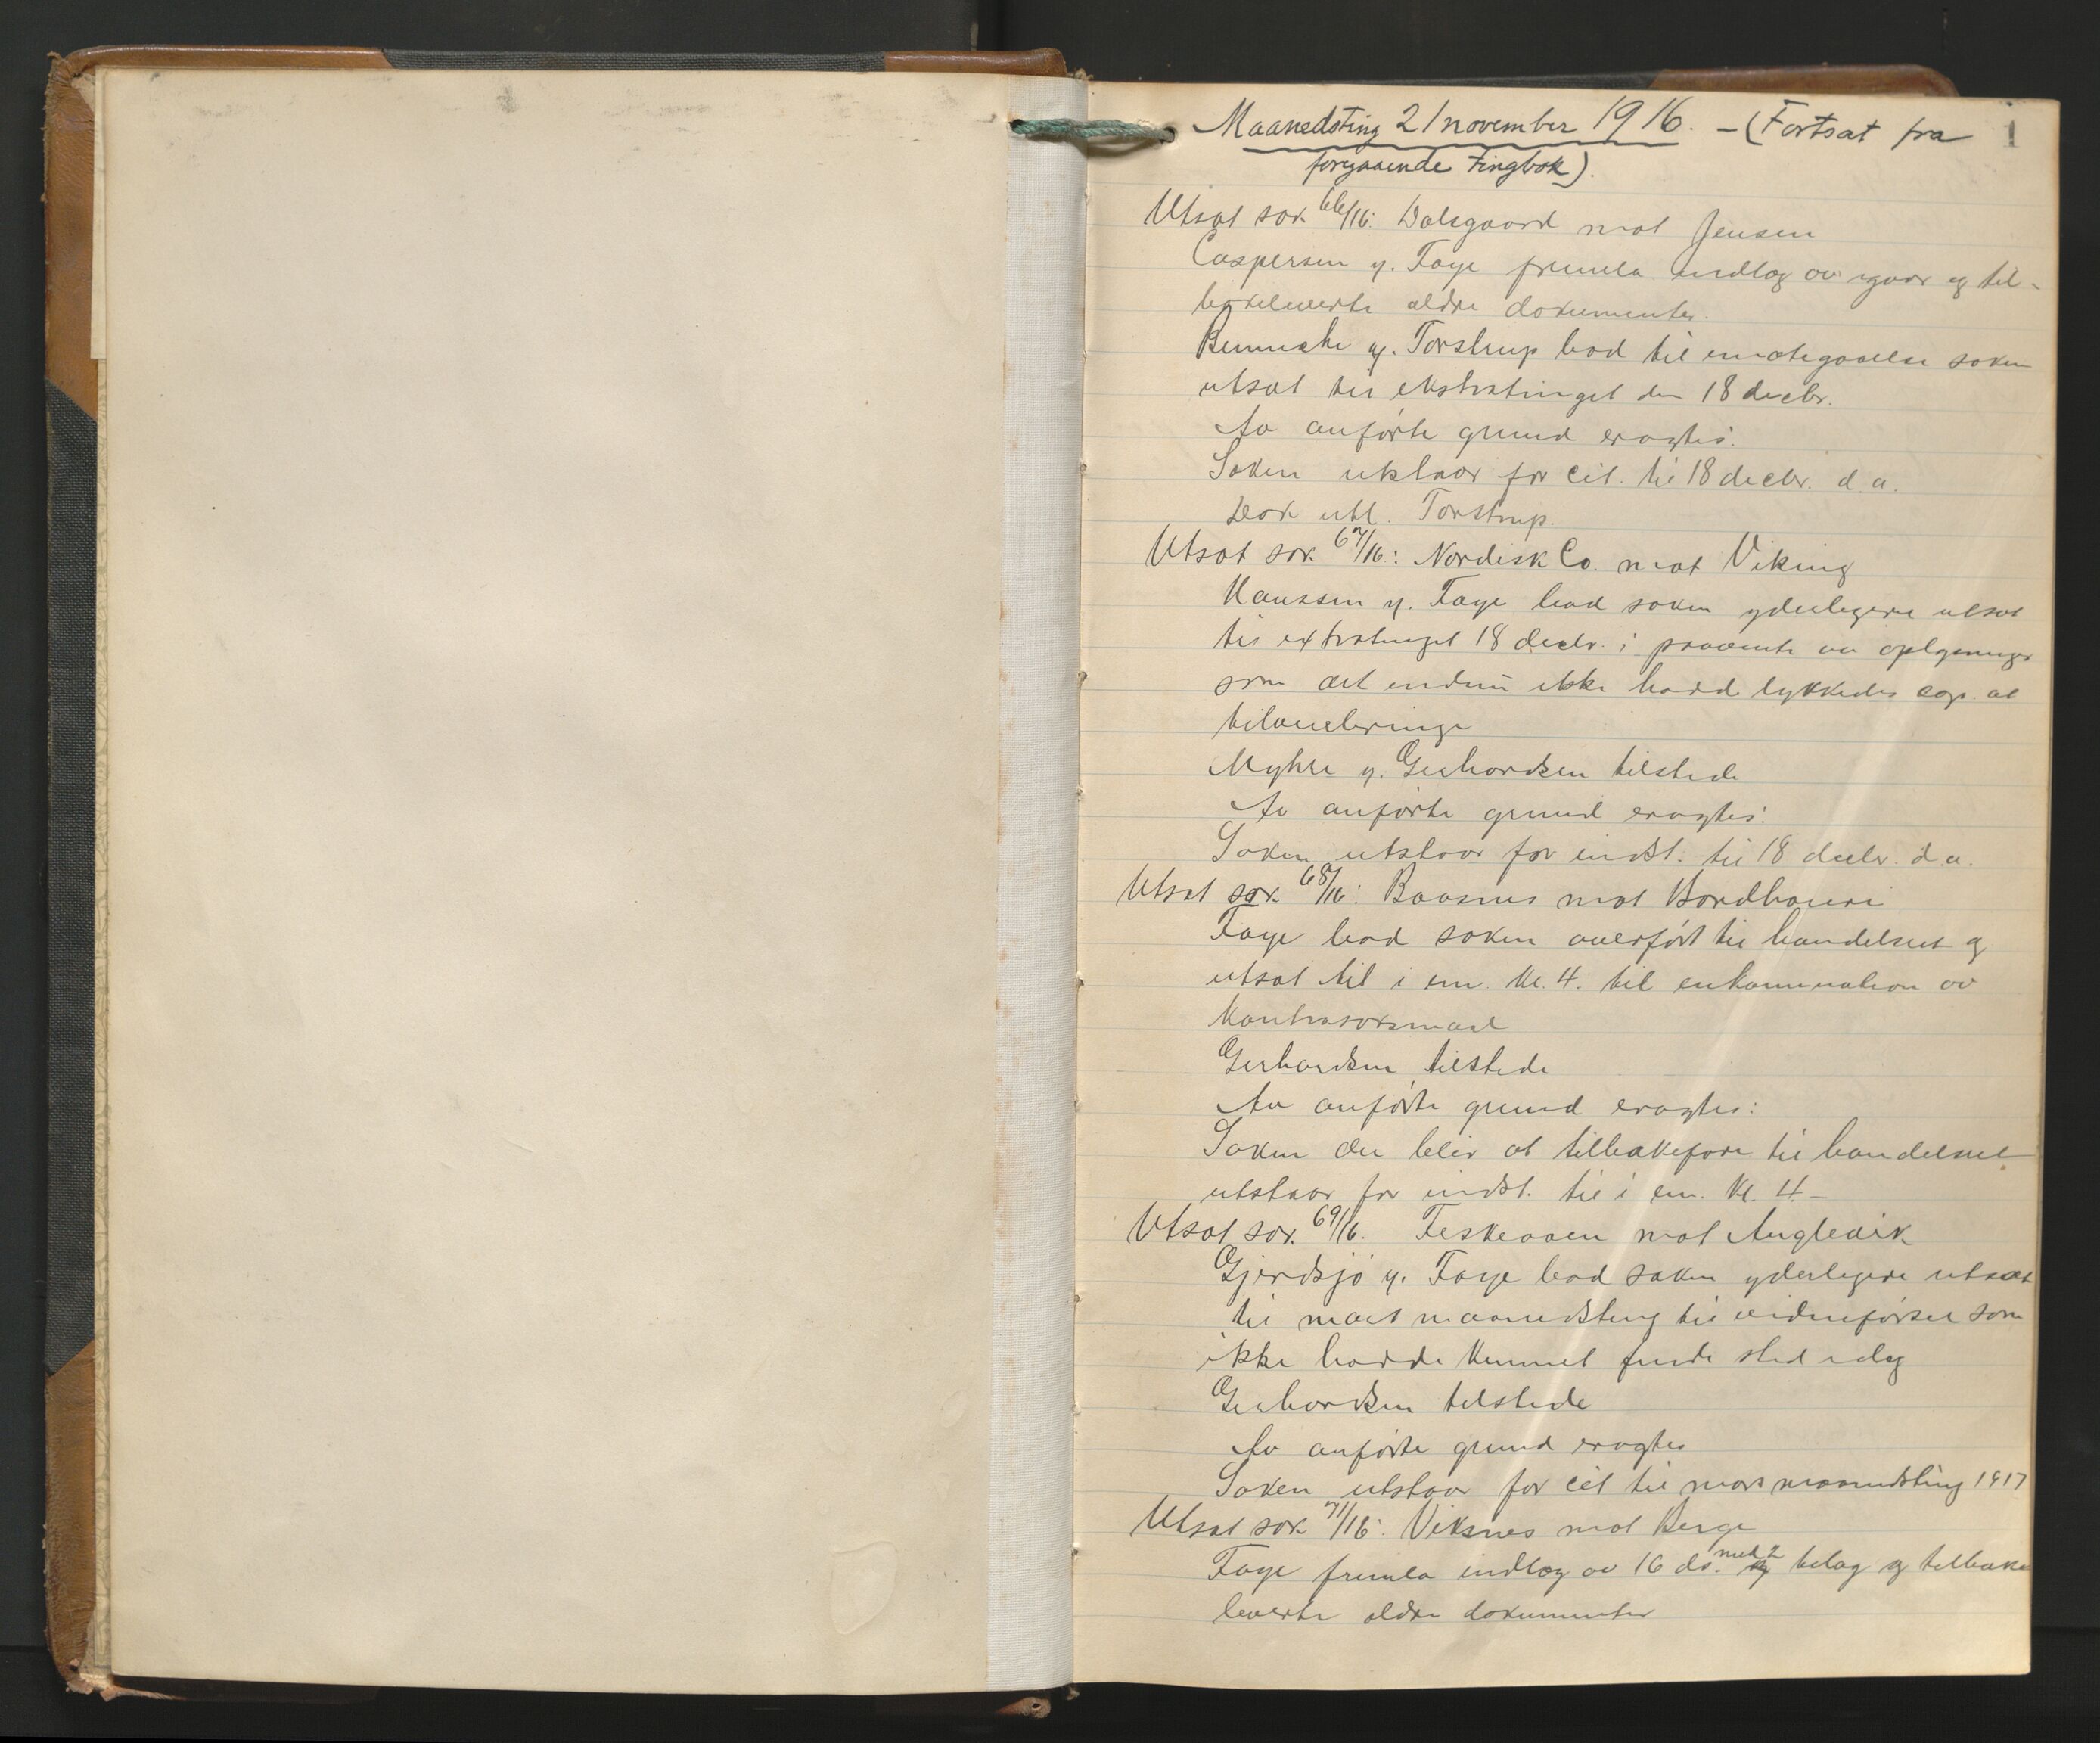 Maanedsting 21 november 1916. - (Fortsat fra
1
forgaaende tingbok).
Utsat sak 66/16: Dalsgaard mot Jensen
Caspersen f. Faye fremla indlæg av igaar og til-
bakeleverte ældre dokumenter.
f. Torstrup bad til imøtegaaelse saken
utsat til ekstratinget den 18 decbr.
Av anførte grund eragtes:
Saken utstaar for cit. til 18 decbr. d.a.
Dok utl. Torstrup.
Utsat sak 67/16: Nordisk Co. mot Viking
Hanssen f. Faye bad saken yderligere utsat
til extratinget 18 decbr. i paavente av oplysninger
som det endnu ikke hadde lykkedes cop. at
tilveiebringe
Myhre f. Gerhardsen tilstede
Av anførte grund eragtes:
Saken utstaar for indst. til 18 decbr. d.a.
Utsat sak 68/16: Baasnes mot
Faye bad saken overført til handelsret og
utsat til i em. kl. 4. til enkamination av
kontrasøksmaal
Gerhardsen tilstede
Av anførte grund eragtes:
Saken der blir at tilbakeføre til handelsret
utstaar for indst. til i em. kl. 4 -
Utsat sak 69/16. Feskeaaen mot Anglevik
Gjerdsjø f. Faye bad saken yderligere utsat
til mars maanedsting til vidneførsel som
ikke hadde kunnet finde sted idag
Gerhardsen tilstede
Av anførte grund eragtes
Saken utstaar for cit til mars maanedsting 1917
Utsat sak 71/16: Viksnes mot Berge
Faye fremla indlæg av 16 ds. med 2 bilag og tilbake
leverte ældre dokumenter